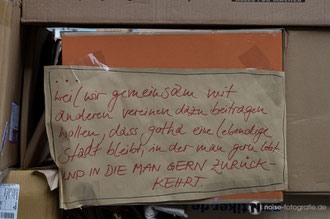 ...
weil wir gemeinsam mit
anderen vereinen dazu beitragen
wollen, dass, gotha eine lebendige
Stadt bleibt, in der man gern lebt
UND IN DIE MAN GERN ZURÜCK-
KEHRT.
noise-fotografie.de